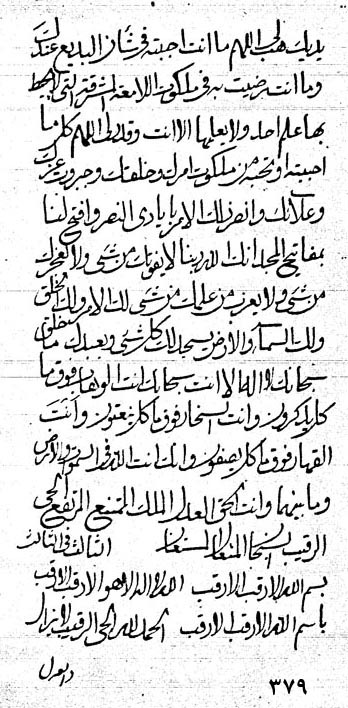 يديك هب اللهم ما انت احببته في شان البديع عندك
وما انت رضيت به في ملكوت اللامعة المشرقة التي لم يحط
بها علم احد ولا يعلمها الا انت وقدر لي اللهم كل ما
احببته او تحبه من ملكوت امرك وخلقك وجبروت عزك
وعلائك وانصرنا بك الامر بايادي النصر وافتح لنا
بمفاتيح المجد انك الله ربنا لا يفوتك من شيء ولا يعجزك
من شيء ولا يعزب من علمك من شيء لك الامر ولك الخلق
ولك السماء والارض يسجد لك كل شيء ويعبدك ما خلق
سبحانك لا اله الا انت سبحانك انت الوهاب فوق ما
كل يذكرون وانت السخار فوق ما كل ينعتون وانت
القهار فوق ما كل يصفون وانك انت الله في السموات والارض
وما بينهما وانت الحق العدل الملك الممتنع المرتفع الحي
الرقيب السبحان المتعال المستعان الثالث في الثالث
بسم الله الارقب الارقب الله لا اله الا هو الارقب الارقب
باسم الله الارقب الارقب الحمد لله الحي الرقيب
٣٧٩